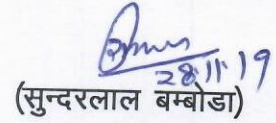 28.11.19
(सुन्दरलाल बम्बोडा)